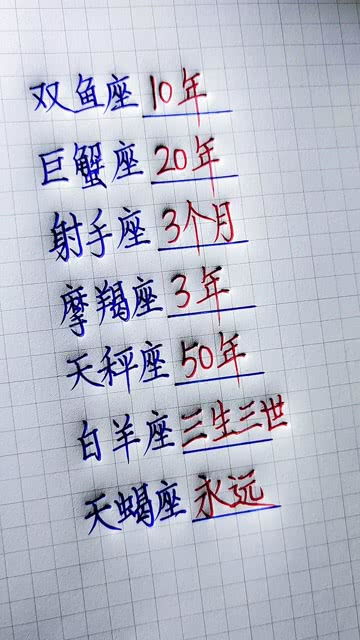 双鱼座 10年
巨蟹座 20年
射手座 3个月
摩羯座 3年
天秤座 50年
白羊座 三生三世
天蝎座 永远